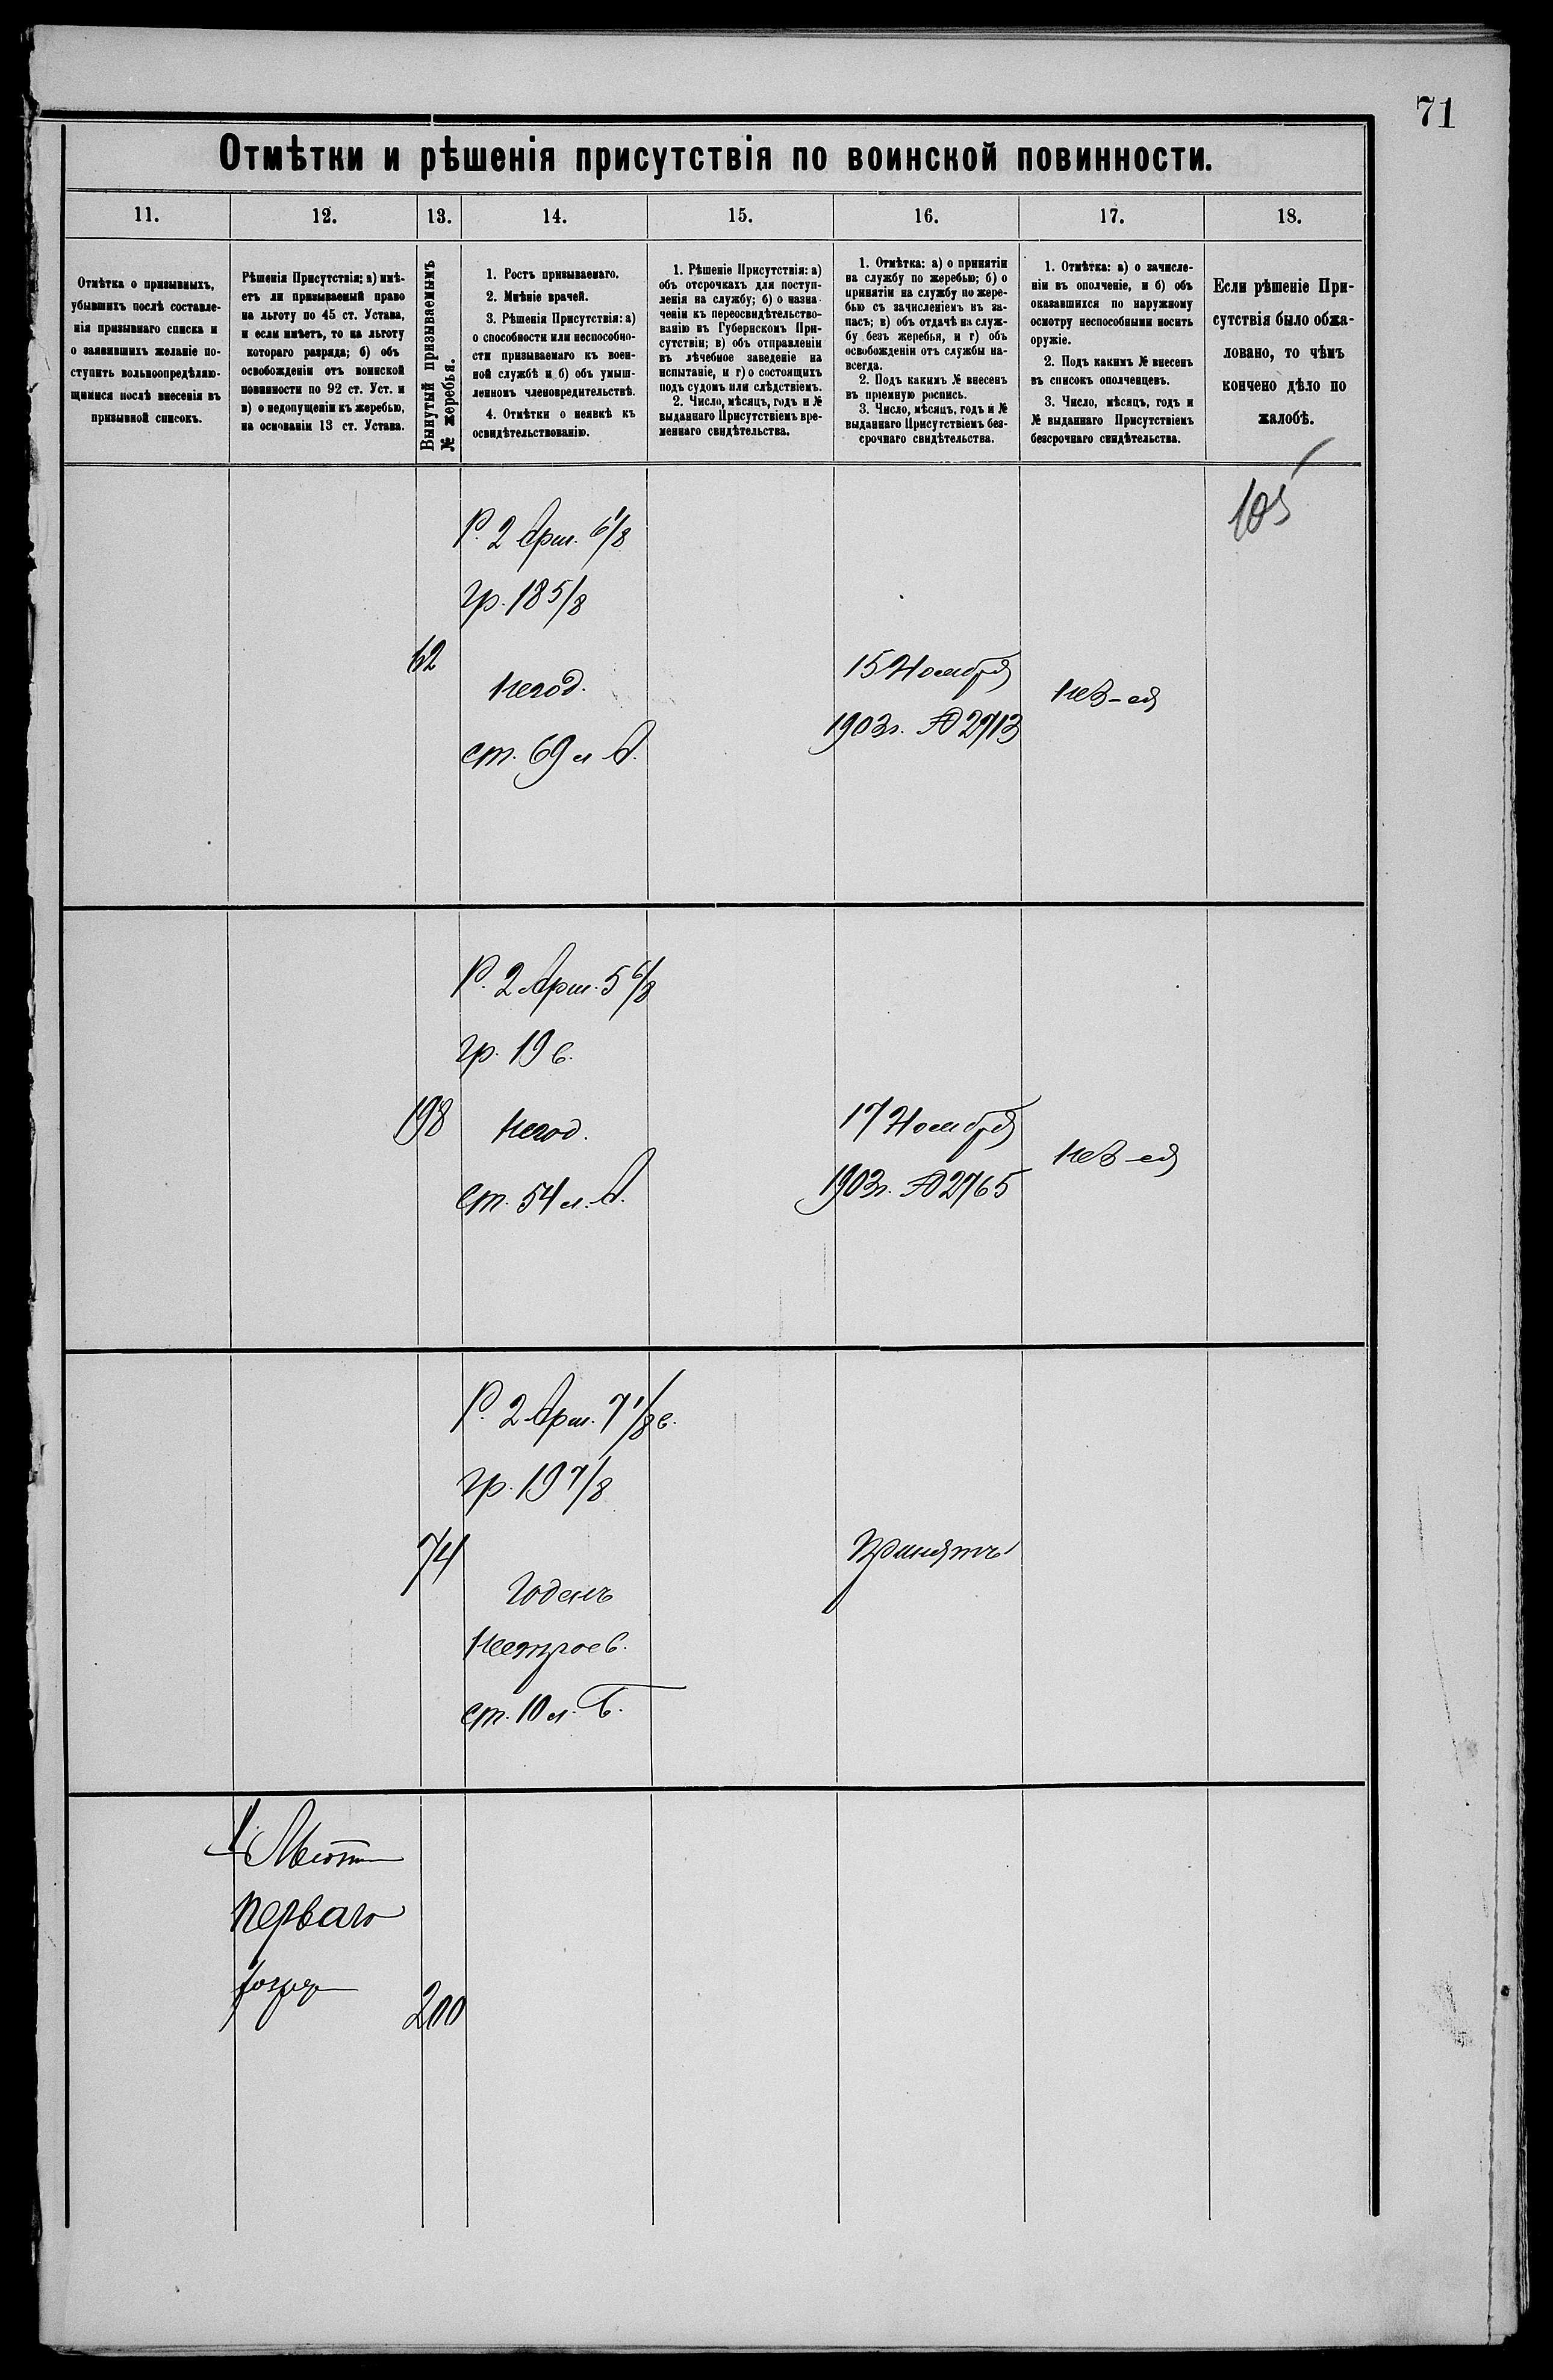 71
Отмѣтки и рѣшенія присутствія по воинской повинности.
11.
12.
13.
14.
15.
16.
17.
18.
Отмѣтка о призывныхъ,
убывшихъ послѣ составле-
нія призывнаго списка и
о заявившихъ желаніе по-
ступить вольноопредѣляю-
щимися послѣ внесенія въ
призывной списокъ.
Рѣшенія Присутствія: а) имѣ-
етъ ли призываемый право
на льготу по 45 ст. Устава,
и если имѣетъ, то на льготу
котораго разряда; б) объ
освобожденіи отъ воинской
повинности по 92 ст. Уст. и
в) о недопущеніи къ жеребью,
на основаніи 13 ст. Устава.
Вынутый призываемымъ
№ жеребья.
1. Ростъ призываемаго.
2. Мнѣніе врачей.
3. Рѣшенія Присутствія: а)
о способности или неспособно-
сти призываемаго къ воен-
ной службѣ и б) объ умыш-
ленномъ членовредительствѣ.
4. Отмѣтки о неявкѣ къ
освидѣтельствованію.
1. Рѣшеніе Присутствія: а)
объ отсрочкахъ для поступ-
ленія на службу; б) о назна-
ченіи къ переосвидѣтельство-
ванію въ Губернскомъ При-
сутствіи; в) объ отправленіи
въ лѣчебное заведеніе на
испытаніе, и г) о состоящихъ
подъ судомъ или слѣдствіемъ.
2. Число, мѣсяцъ, годъ и №
выданнаго Присутствіемъ вре-
меннаго свидѣтельства.
1. Отмѣтка: а) о принятіи
на службу по жеребью; б) о
принятіи на службу по жере-
бью съ зачисленіемъ въ за-
пасъ; в) объ отдачѣ на служ-
бу безъ жеребья, и г) объ
освобожденіи отъ службы на-
всегда.
2. Подъ какимъ № внесенъ
въ пріемную роспись.
3. Число, мѣсяцъ, годъ и №
выданнаго Присутствіемъ без-
срочнаго свидѣтельства.
1. Отмѣтка: а) о зачисле-
ніи въ ополченіе, и б) объ
оказавшихся по наружному
осмотру неспособными носить
оружіе.
2. Подъ какимъ № внесенъ
въ списокъ ополченцевъ.
3. Число, мѣсяцъ, годъ и
№ выданнаго Присутствіемъ
безсрочнаго свидѣтельства.
Если рѣшеніе При-
сутствія было обжа-
ловано, то чѣмъ
кончено дѣло по
жалобѣ.
105
Р. 2 Арш. 6 1/8
гр. 18 5/8
62
негод.
ст. 69 л А.
15 Ноября
1903г. № 2713
Р. 2 Арш. 5 6/8
гр. 19 в.
198
негод.
ст. 54 л. А.
17 Ноября
1903г. № 2765
Р. 2 Арш. 7 1/8 в.
гр. 19 7/8
74
Годенъ
нестроев.
ст. 10 л. Б.
Принятъ
Льгота
перваго
разряда
200